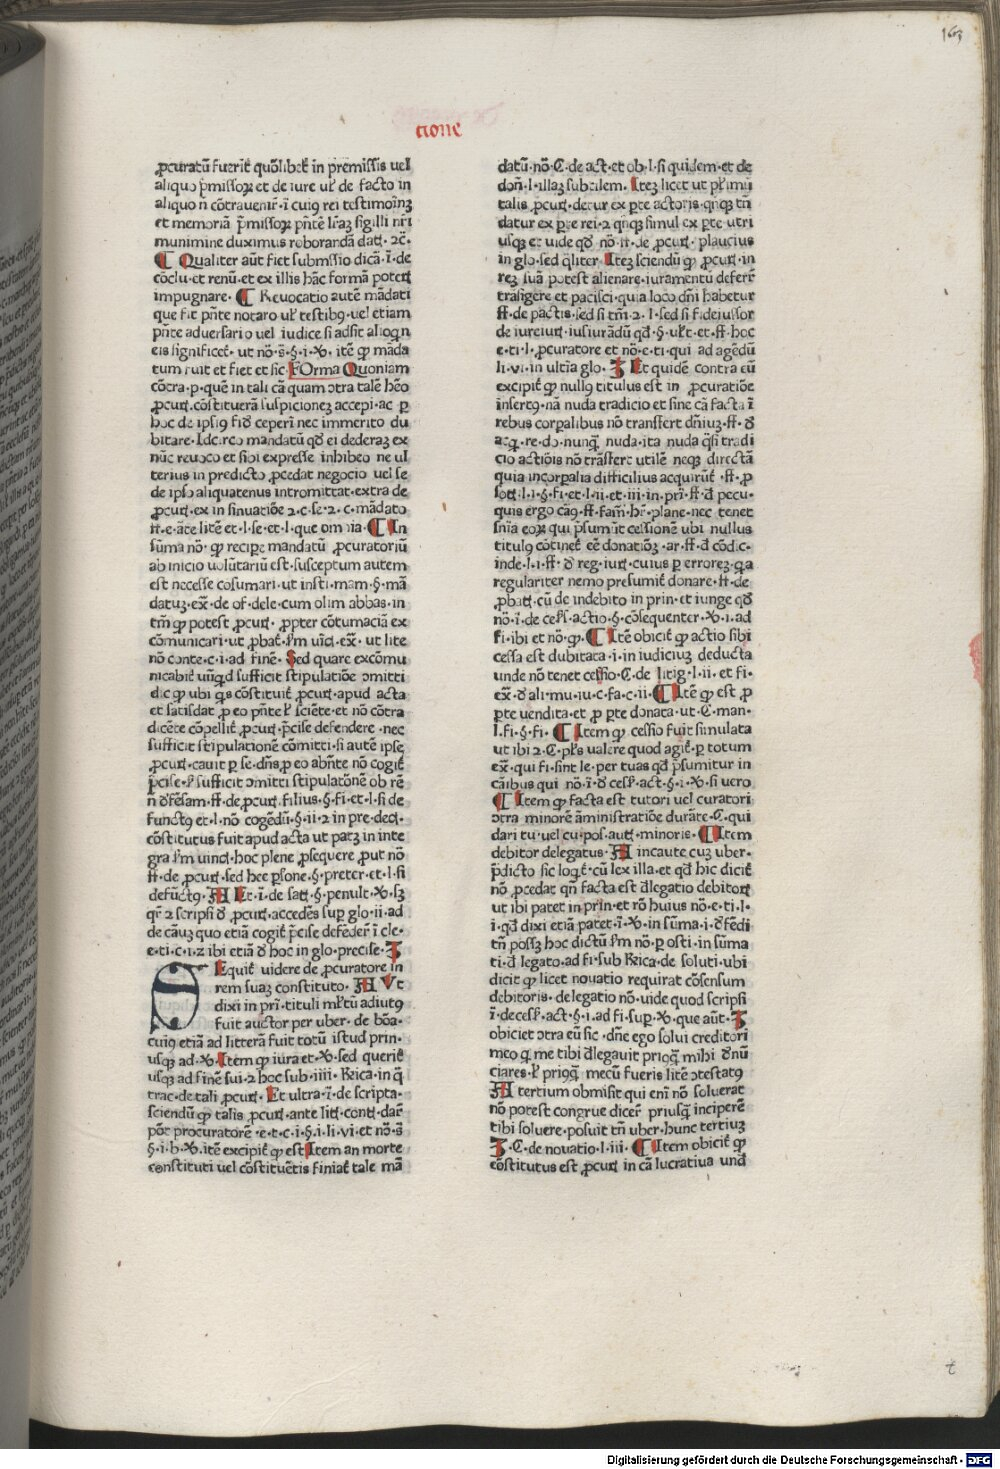 163
cione
ꝓcuratũ fuerit̃ quõlibet̃ in premissis uel
aliquo p̃missoꝝ et de iure uł de facto in
aliquo ñ cõtraueniř·ĩ cuiꝯ rei testimoĩꝫ
et memoriã p̃missoꝝ pñtẽ lr̃aꝫ sigilli nr̃i
munimine duximus roborandã dat̃·⁊c̃·
¶ Qualiter aũt fiet submssio dicã·ĩ·de
cõclu·et renũ·et ex illis hãc formã poteꝶ
impugnare· ¶ Reuocatio autẽ mãdati
que fit pñte notaro uł testibꝯ·uel etiam
pñte aduersario uel iudice si adsit alioqͥn
eis significet̃· ut nõ·s̃·§·i·ꝟ· itẽ ꝙ mãda
tum fuit et fiet et sic FOrma Quoniam
cõtra·p·quẽ in tali cã quam ↄtra talẽ hẽo
ꝓcur̃·cõstituerã suspicioneꝫ accepi·ac ꝑ
hoc de ipsiꝯ fiđ ceperĩ nec immerito du
bitare·Idcirco mandatũ qđ ei dederaꝫ ex
nũc reuoco et sibi expresse inhibeo ne ul
terius in predicto ꝓcedat negocio uel se
de ipso aliquatenus intromittat·extra de
ꝓcur̃·ex in sinuatiõe ⁊·c·se·⁊·c·mãdato
ff·e·ãte litẽ et·l·se·et·l·que omnia· ¶ In
sũma nõ·ꝙ recipe mandatũ ꝓcuratoriũ
ab inicio uolũtariũ est·susceptum autem
est necesse cosumari·ut insti·mam·§·mã
datuꝫ·ex̃·de of·dele·cum olim abbas·in
tm̃ ꝙ potest ꝓcur̃· ꝓpter cõtumaciã ex
cõmunicari·ut ꝓbat̃·ẜm uĩcł·ex̃·ut lite
nõ conte·c·i·ad finẽ· Sed quare excõmu
nicabit̃ unͣqđ sufficit stipulatiõe ↄmitti
dic ꝙ ubi qͥs cõstituit̃ ꝓcur̃·apud acta
et satisdat ꝓ eo pñte ł sciẽte·et nõ cõtra
dicẽte cõpellit̃ ꝓcur̃·p̃cise defendere·nec
sufficit stipulationẽ cõmitti·si autẽ ipse
ꝓcur̃·cauit ꝑ se·dñs·ꝓ eo abñte nõ cogit̃
p̃cise·ł sufficit ↄmitti stipulatõnẽ ob rẽ
ñ đfẽsam·ff·de ꝓcur̃·filius·§·fi·et·l·si de
functꝯ et·l·nõ cogẽdũ·§·ii·⁊ in pre·decł·
cõstitutus fuit apud acta ut patꝫ in inte
gra ẜm uincł·hoc plene ꝓsequere ꝓut nõ
ff·de ꝓcur̃·sed hec ꝑsone·§·preter·et·l·si
defũctꝯ· A Et·ĩ·de sat̃·§·penult·ꝟ·sꝫ
qr̃·⁊ scripsi đ ꝓcur̃·accedẽs suꝑ glo·ii·ad
de cãuꝫ quo etiã cogit̃ p̃cise defẽdeř ĩ cle·
e·ti·c·i·⁊ ibi etiã đ hoc in glo·precise· I
SEquit̃ uidere de ꝓcuratore in
rem suaꝫ constituto· A Vt
dixi in prĩ·tituli ml̃tũ adiutꝯ
fuit auctor per uber·de bõa·
cuiꝯ etiã ad litterã fuit totũ istud prin·
usqꝫ ad·ꝟ·Item ꝙ iura et·ꝟ·sed querit̃
usqꝫ ad finẽ sui·⁊ hoc sub·iiii·Rrica·in q̃
trac·de tali ꝓcur̃· Et ultra·ĩ·de scripta·
sciendũ ꝙ talis ꝓcur̃·ante lit̃·cont̃·dař
põt procuratorẽ·e·t·c·i·§·i·li·vi·et nõ·s̃
§·i·b·ꝟ·itẽ excipit̃ ꝙ est Item an morte
constituti uel cõstituẽtis finiat̃ tale mã
datũ·nõ·C·de act·et ob·l·si quidem·et de
don̄·l·illaꝫ subtilem· Iteꝫ licet ut pl̃imũ
talis ꝓcur̃·detur ex ꝑte actoris·qñqꝫ tñ
datur ex ꝑte rei·⁊ qñqꝫ simul ex ꝑte utri
usqꝫ et uide qđ nõ·ff·de ꝓcur̃·plaucius
in glo·sed qͣliter Iteꝫ sciendũ ꝙ ꝓcur̃·in
reꝫ suã potest alienare·iuramentũ deferř
trãsigere et pacisci·quia loco dñi habetur
ff·de pactis·sed si tm̃·⁊·l·sed si fideiussor
de iureiur̃·iusiurãdũ qđ·§·ult·et·ff·hoc
e·ti·l·ꝓcuratore et nõ·e·ti·qui ad agẽdũ
li·vi·in ultĩa glo· I Et quidẽ contra eũ
excipit̃ ꝙ nullꝯ titulus est in ꝓcuratiõe
insertꝯ·nã nuda tradicio et sine cã facta ĩ
rebus corꝑalibus nõ transfert dñiuꝫ·ff·đ
acq̃·re·do·nunq̃ nuda·ita nuda qͣsi tradi
cio actiõis nõ trãsfert utilẽ neqꝫ directã
quia incorꝑalia difficilius acquirut̃·ff·ꝓ
sot̃·l·i·§·fi·et·l·ii·et·iii·in·prĩ·ff·đ pecu·
quis ergo cãꝯ·ff·fam̃·hr̃·plane·nec tenet
sñia eoꝝ qui p̃sumũt cessionẽ ubi nullus
titulꝯ cõtinet̃ eẽ donatiõꝫ·ar·ff·đ cõdic·
inde·l·i·ff·đ reg·iur̃·cuius ꝑ erroreꝫ·qͥa
regulariter nemo presumit̃ donare·ff·de
ꝓbat̃·cũ de indebito in prin·et iunge qđ
nõ·ĩ·de cesẜ·actio·§·cõsequenter·ꝟ·i·ad
fi·ibi et nõ·ꝙ· ¶ Itẽ obicit̃ ꝙ actio sibi
cessa est dubitata·i·in iudiciuꝫ deducta
unde nõ tenet cessio·C·de litig·l·ii·et fi·
ex̃·đ ali·mu·iu·c·fa·c·ii· ¶ Itẽ ꝙ est ꝓ
ꝑte uendita·et ꝓ ꝑte donata·ut·C·man·
l·fi·§·fi· ¶ Item ꝙ cessio fuit simulata
ut ibi ⁊·C·pl̃s ualere quod agit̃·ꝑ totum
ex̃·qui fi·sint le·per tuas qđ p̃sumitur in
cãibus qui nõ·ĩ·đ cesẜ·act·§·i·ꝟ·si uero
¶ Item ꝙ facta est tutori uel curatori
ↄtra minorẽ ãministratiõe durãte·C·qui
dari tu·uel cu·pos·aut̃·minoris· ¶ Item
debitor delegatus· A incaute cuꝫ uber·
p̃dicto sic loqͥt̃·cũ lex illa·et qđ hic dicit̃
nõ ꝓcedat qñ facta est đlegatio debitoꝝ
ut ibi patet in prin·et rõ huius nõ·e·ti·l·
i·qđ dixi etiã patet·ĩ·ꝟ·in sũma·i·đfẽdi
tñ possꝫ hoc dictũ ẜm nõ·ꝑ osti·in sũma
ti·đ legato·ad fi·sub Rrica·de soluti·ubi
dicit ꝙ licet nouatio requirat cõsensum
debitoris·delegatio nõ·uide quod scripsi
ĩ·de cesẜ·act·§·i·ad fi·suꝑ·ꝟ·que aũt· I
obiciet ↄtra eũ sic·dñe ego solui creditori
meo qͥ me tibi đlegauit priꝯq̃ mihi đnũ
ciares·ł priꝯq̃ mecũ fueris litẽ ↄtestatꝯ
A tertium obmisit qui eni nõ soluerat
nõ potest congrue diceř priusq̃ inciperẽ
tibi soluere·posuit tñ uber·hunc tertiuꝫ
I·C·de nouatio·l·iii· ¶ Item obicit̃ ꝙ
cõstitutus est ꝓcur̃ in cã lucratiua und̃
t
Digitalisierung gefördert durch die Deutsche Forschungsgemeinschaft · DFG